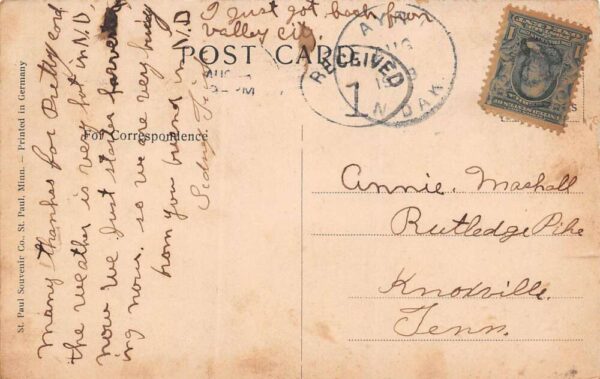 I just got back from
Valley City
POST CARD
AYR
AUG
N. DAK.
RECEIVED
1
AUG
PM
For Correspondence.
many thanks for Pretty card
the weather is very hot in N.D,
now we Just started harvest
ing now. so we are very busy
from you friend in N.D
Sidney
Annie. Mashall
Rutledge Pike
Knoxville.
Tenn.
St. Paul Souvenir Co., St. Paul, Minn. — Printed in Germany
1
1